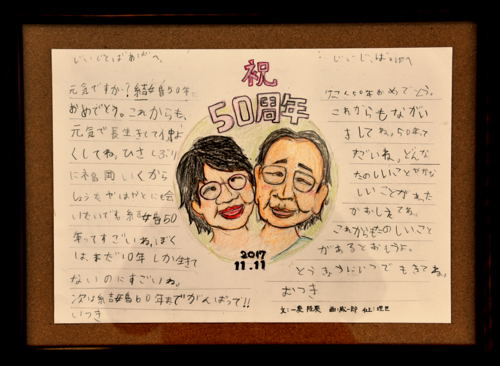 じいじとばあばへ。
元気ですか？結婚50年
おめでとう。これからも、
元気で長生きして仲よ
くしてね。ひさしぶり
に福岡いくから
しょうもやはやとにも会
いたいです。結婚50
年ってすごいね。ぼく
は、まだ10年しか生きて
ないのにすごいね。
次は結婚60年までがんばって!!
いつき
祝
50周年
2017
11.11
じいじ、ばあばへ
けっこん50年おめでとう。
これからもながい
きしてね。50年って
だいね。どんな
たのしいことやかな
しいことがあった
かおしえてね。
これからもたのしいこと
があるとおもうよ。
とうきょうにいつでもきてね。
むつき